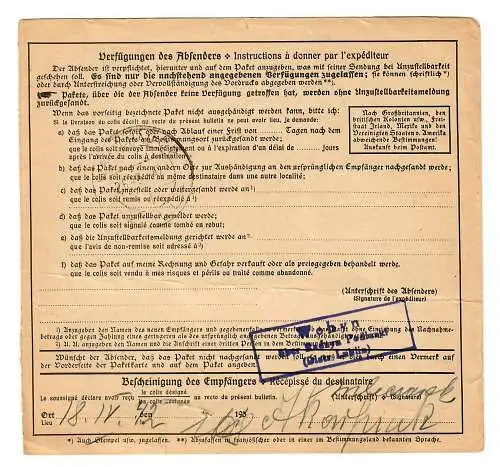 Verfügungen des Absenders ✦ Instructions à donner par l'expéditeur
Der Absender ist verpflichtet, hierunter und auf dem Paket anzugeben, was mit seiner Sendung bei Unzustellbarkeit
geschehen soll. Es sind nur die nachstehend angegebenen Verfügungen zugelassen; sie können schriftlich *)
oder durch Unterstreichung oder Vervollständigung des Vordrucks abgegeben werden **).
Pakete, über die der Absender keine Verfügung getroffen hat, werden ohne Unzustellbarkeitsmeldung
zurückgesandt.
Wenn das vorseitig bezeichnete Paket nicht ausgehändigt werden kann, bitte ich:
Si la livraison du colis décrit au recto du présent bulletin ne peut avoir lieu, je demande:
a) daß das Paket sofort oder nach Ablauf einer Frist von ...... Tagen nach dem
Eingang des Pakets am Bestimmungsort zurückgesandt werde;
que le colis soit renvoyé immédiatement ou à l'expiration d'un délai de ...... jours
après l'arrivée du colis à destination;
b) daß das Paket nach einem andern Orte zur Aushändigung an den ursprünglichen Empfänger nachgesandt werde;
que le colis soit réexpédié au même destinataire dans une autre localité;
c) daß das Paket zugestellt oder weitergesandt werde an ¹)
que le colis soit remis ou réexpédié à ¹)
d) daß das Paket unzustellbar gemeldet werde;
que le colis soit signalé comme tombé en rebut;
e) daß die Unzustellbarkeitsmeldung gerichtet werde an ¹)
que l'avis de non-remise soit adressé à ¹)
f) daß das Paket auf meine Rechnung und Gefahr verkauft oder als preisgegeben behandelt werde.
que le colis soit vendu à mes risques et périls ou traité comme abandonné.
Nach Großbritannien, den
britischen Kolonien usw., Frei-
staat Irland, Mexiko und den
Vereinigten Staaten v. Amerika
abweichende Bestimmungen!
Auskunft beim Postamt.
(Unterschrift des Absenders)
(Signature de l'expéditeur)
1) Anzugeben den Namen des neuen Empfängers und gegebenenfalls vermerken, ob die Aushändigung ohne Einziehung des Nachnahme-
betrags oder gegen Zahlung eines geringeren als des ursprünglich angegebenen
Wünscht der Absender, daß das Paket nicht nachgesandt werden soll, durch einen Vermerk auf
der Vorderseite der Paketkarte und auf dem Paket angeben.
Wohyn
(Distr. Lublin)
Bescheinigung des Empfängers Récépissé du destinataire
Le soussigné déclare avoir reçu le colis désigné au recto du présent bulletin. (Unterschrift) (Signature)
Ort 18. IV. 42 den 193
Lieu
*) Auch Stempel usw. zugelassen. **) Abzufassen in französischer oder in einer im Bestimmungsland bekannten Sprache.